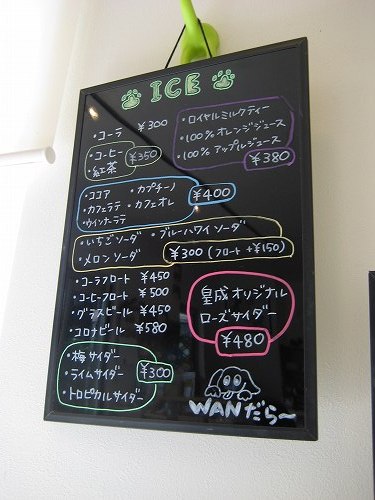 ICE
・コーラ ¥300
・コーヒー
・紅茶
¥350
・ロイヤルミルクティー
・100%オレンジジュース
・100%アップルジュース
¥380
・ココア ・カプチーノ
・カフェラテ ・カフェオレ
・ウインナーラテ
¥400
・いちごソーダ ・ブルーハワイソーダ
・メロンソーダ
¥300(フロート+¥150)
・コーラフロート ¥450
・コーヒーフロート ¥500
・グラスビール ¥450
・コロナビール ¥580
皇成オリジナル
ローズサイダー
¥480
・梅サイダー
・ライムサイダー
・トロピカルサイダー
¥300
WANだら〜